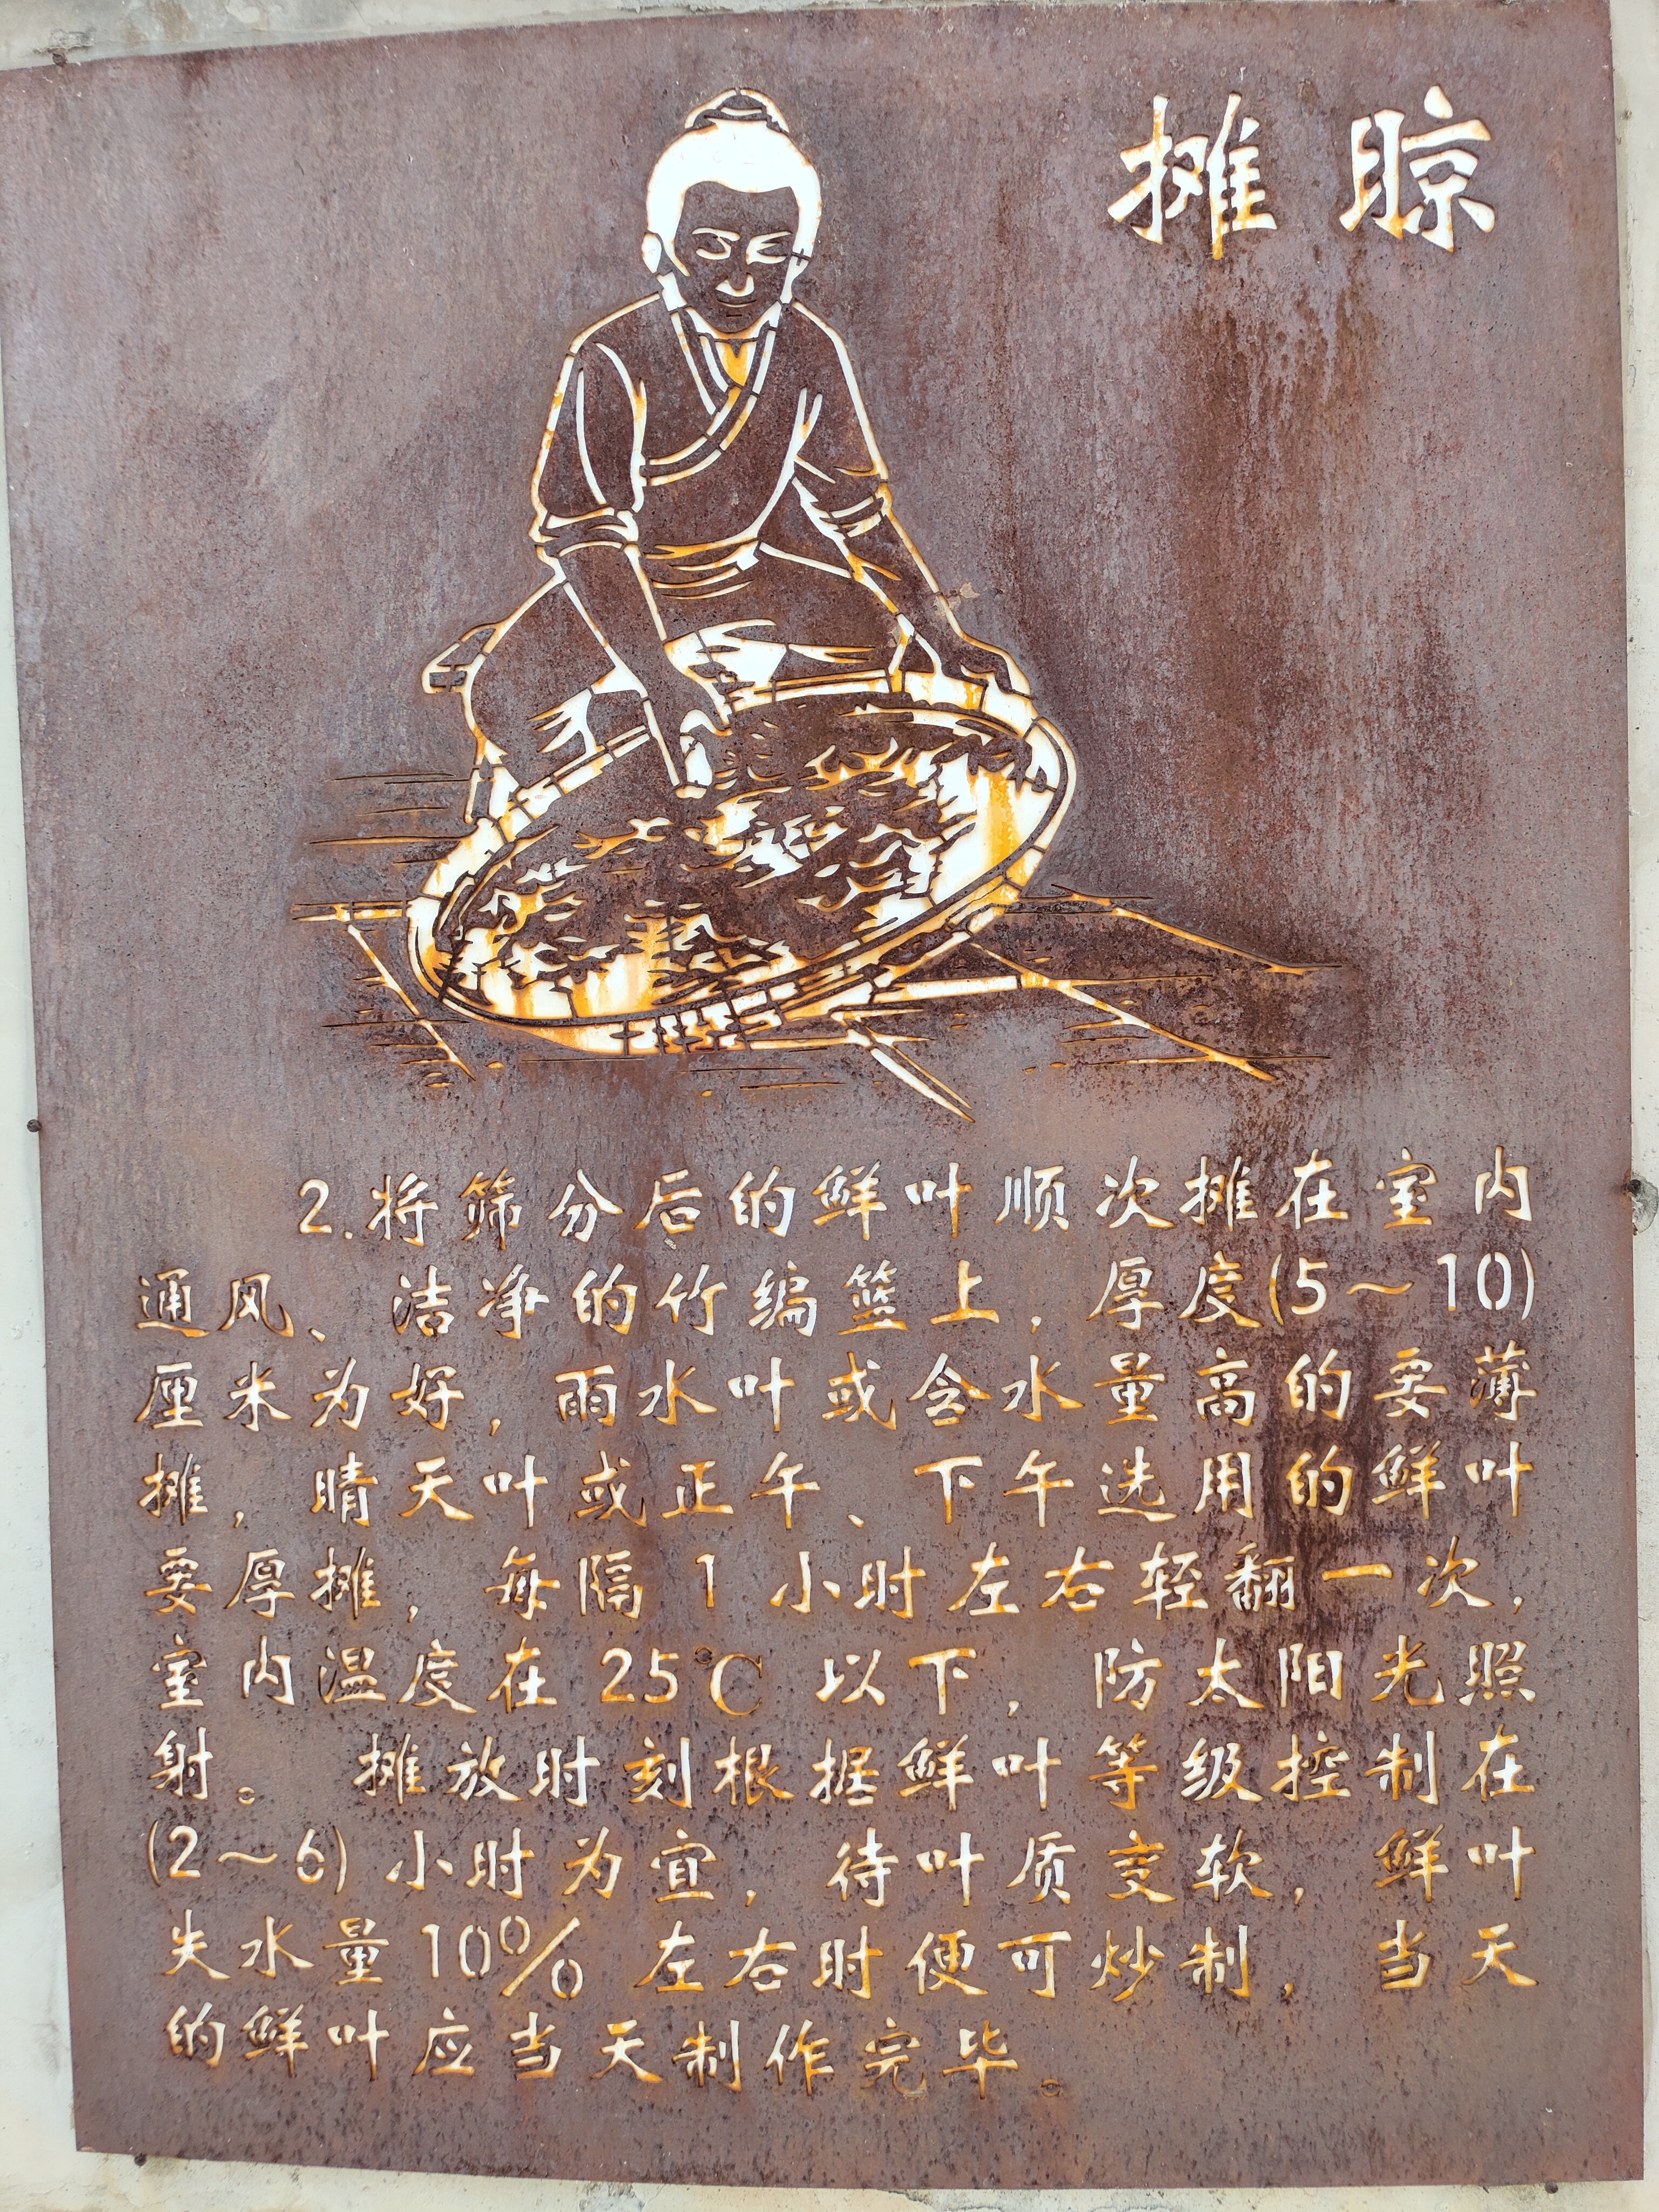 摊晾
2.将筛分后的鲜叶顺次摊在室内
通风、洁净的竹编篮上，厚度(5～10)
厘米为好，雨水叶或含水量高的要薄
摊，晴天叶或正午、下午选用的鲜叶
要厚摊，每隔1小时左右轻翻一次，
室内温度在25℃以下，防太阳光照
射。摊放时刻根据鲜叶等级控制在
(2～6)小时为宜，待叶质变软，鲜叶
失水量10%左右时便可炒制，当天
的鲜叶应当天制作完毕。